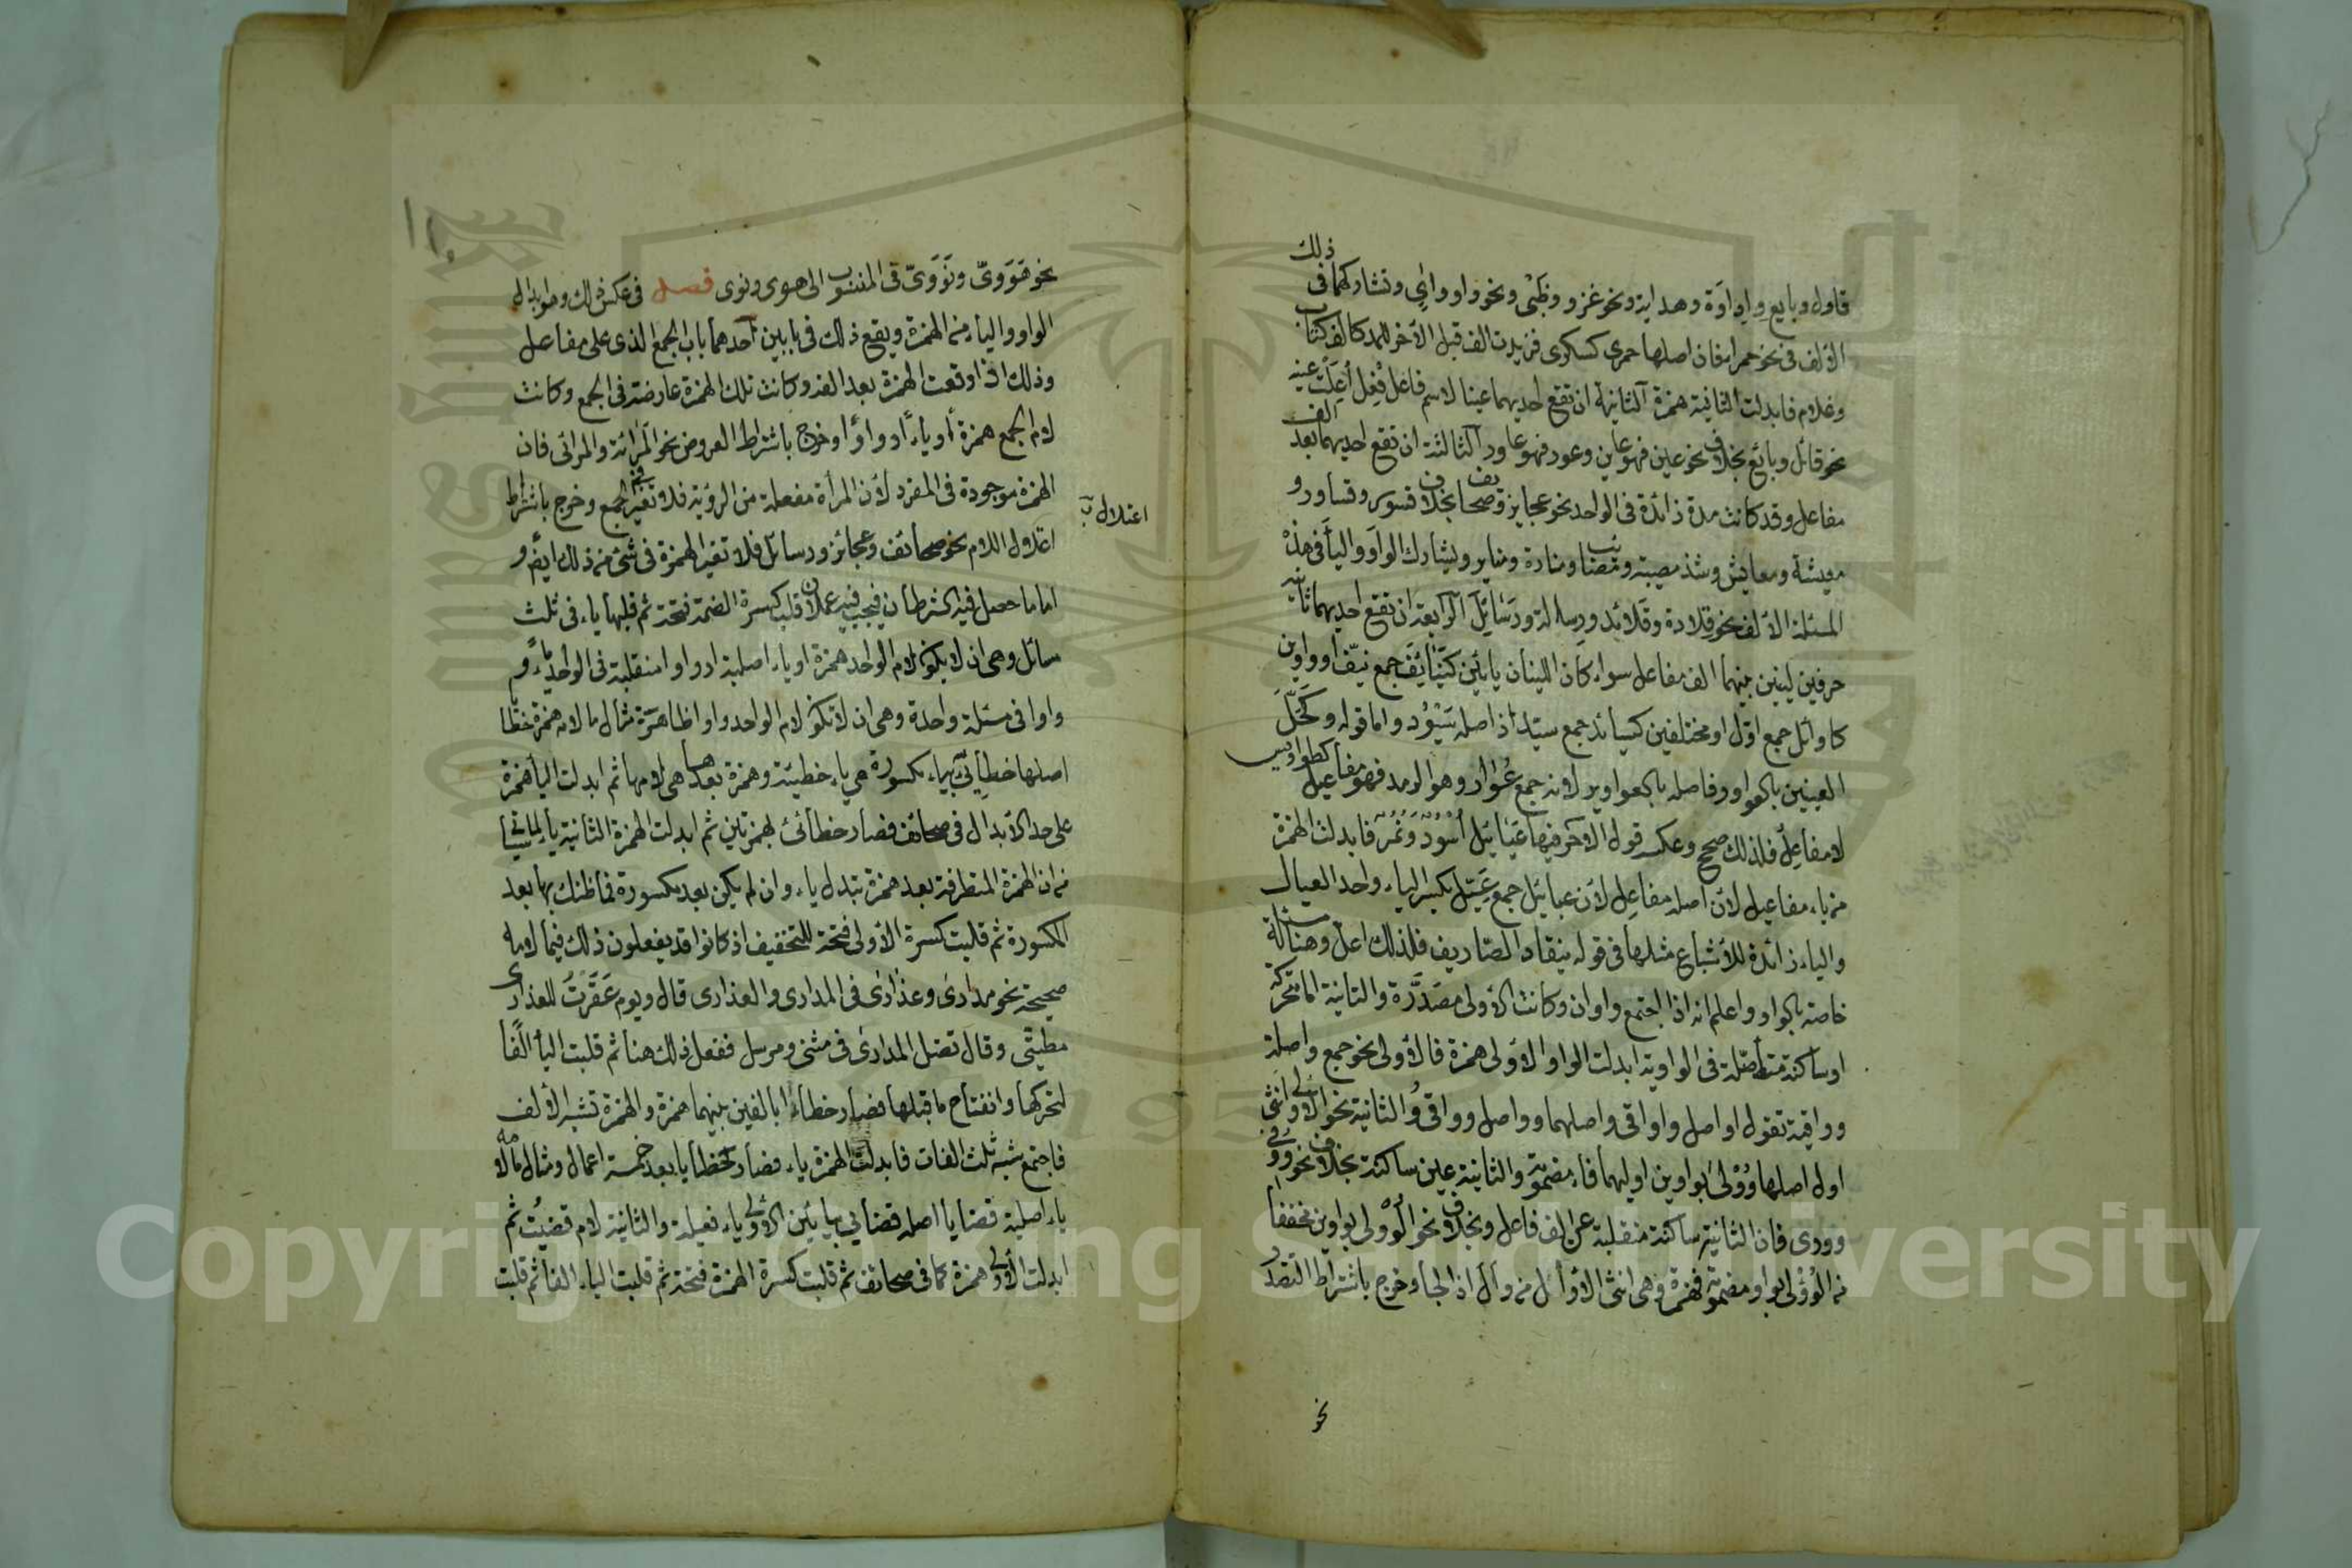 قاول وبايع واداوة وهداية ونحو غزو وظبى ونحو واو وواى وتشاركهما فى ذلك
الالف فى نحو حمراء فان اصلها حمرى كسكرى فزيدت الف قبل الآخر للمد كالف كتاب
وغلام فابدلت الثانية همزة الثانية ان تقع احديهما عينا لاسم فاعل فعل اعلت عينه
نحو قائل وبائع بخلاف نحو عين فهو عاين وعور فهو عاور الثالثة ان تقع احديهما بعد الف
مفاعل وقد كانت مدة زائدة فى الواحد نحو عجايز وصحايف بخلاف قسور وقساور و
معيشة ومعايش وشذ مصيبة ومصائب ومنارة ومناير ويشارك الواو والياء فى هذه
المسئلة الالف نحو قلادة وقلائد ورسالة ورسائل الرابعة ان تقع احديهما ثانية
حرفين لينين بينهما الف مفاعل سواء كان اللينان يائين كنيائف جمع نيف او واوين
كاوائل جمع اول او مختلفين كسيائد جمع سيد اذ اصله سيود واما قوله وكحل
العينين بالعواور فاصله بالعواوير لانه جمع عوار وهو الرمد فهو مفاعيل كطواويس
لا مفاعل فلذلك صحح وعكسه قول الآخر فيها عيائيل اسود ونمر فابدلت الهمزة
من ياء مفاعيل لان اصله مفاعل لان عيائيل جمع عيل بكسر الياء واحد العيال
والياء زائدة للاشباع مثلها فى قوله تنقاد الصياريف فلذلك اعل وهنا مسئلة
خاصة بالواو واعلم انه اذا اجتمع واوان وكانت الاولى مصدرة والثانية اما متحركة
او ساكنة متأصلة فى الواوية ابدلت الواو الاولى همزة فالاولى نحو جمع واصلة
وواقية تقول اواصل واواقى واصلهما وواصل وواقى والثانية نحو الاولى انثى
اول اصلها وولى بواوين اوليهما فاء مضمومة والثانية عين ساكنة بخلاف نحو ووفى
وورى فان الثانية ساكنة منقلبة عن الف فاعل وبخلاف نحو الوولى بواوين مخففا
من الوؤلى بواو مضمومة فهمزة وهى انثى الاوأل من وأل اذا لجأ وخرج باشتراط التصدر
نحو
١١٠
نحو هووى ونووى فى المنسوب الى هوى ونوى فصل فى عكس ذلك وهو ابدال
الواو والياء من الهمزة ويقع ذلك فى بابين احدهما باب الجمع الذى على مفاعل
وذلك اذا وقعت الهمزة بعد الفه وكانت تلك الهمزة عارضة فى الجمع وكانت
لام الجمع همزة او ياء او واوا وخرج باشتراط العروض نحو المرائة والمرائى فان
الهمزة موجودة فى المفرد لان المرأة مفعلة من الرؤية فلا تغير فى الجمع وخرج باشتراط
اعتلال
اعتلال اللام نحو صحائف وعجائز ورسائل فلا تغير الهمزة فى شئ من ذلك ايض و
اما ما حصل فيه الشرطان فيجب فيه عملان قلب كسرة الضمة فتحة ثم قلبها ياء فى ثلث
مسائل وهى ان لا يكون لام الواحد همزة او ياء اصلية او واوا منقلبة فى الواحد ياء و
واوا فى مسئلة واحدة وهى ان لا تكون لام الواحد واوا ظاهرة مثال ما لامه همزة خطايا
اصلها خطايئ بياء مكسورة هى ياء خطيئة وهمزة بعدها هى لامها ثم ابدلت الياء همزة
على حد الابدال فى صحائف فصار خطائئ بهمزتين ثم ابدلت الهمزة الثانية ياء لما سيأتى
من ان الهمزة المتطرفة بعد همزة تبدل ياء وان لم يكن بعد مكسورة فما ظنك بها بعد
المكسورة ثم قلبت كسرة الاولى فتحة للتخفيف اذ كانوا قد يفعلون ذلك فيما لامه
صحيحة نحو مدارى وعذارى فى المدارى والعذارى قال ويوم عقرت للعذارى
مطيتى وقال تضل المدارى فى مثنى ومرسل ففعل ذلك هنا ثم قلبت الياء الفا
لتحركها وانفتاح ما قبلها فصار خطاءا بالفين بينهما همزة والهمزة تشبه الالف
فاجتمع شبه ثلث الفات فابدلت الهمزة ياء فصار خطايا بعد خمسة اعمال ومثال ما لامه
ياء اصلية قضايا اصله قضايى بيائين الاولى ياء فعيلة والثانية لام قضيت ثم
ابدلت الاولى همزة كما فى صحائف ثم قلبت كسرة الهمزة فتحة ثم قلبت الياء الفا ثم قلبت
Copyright © King Saud University